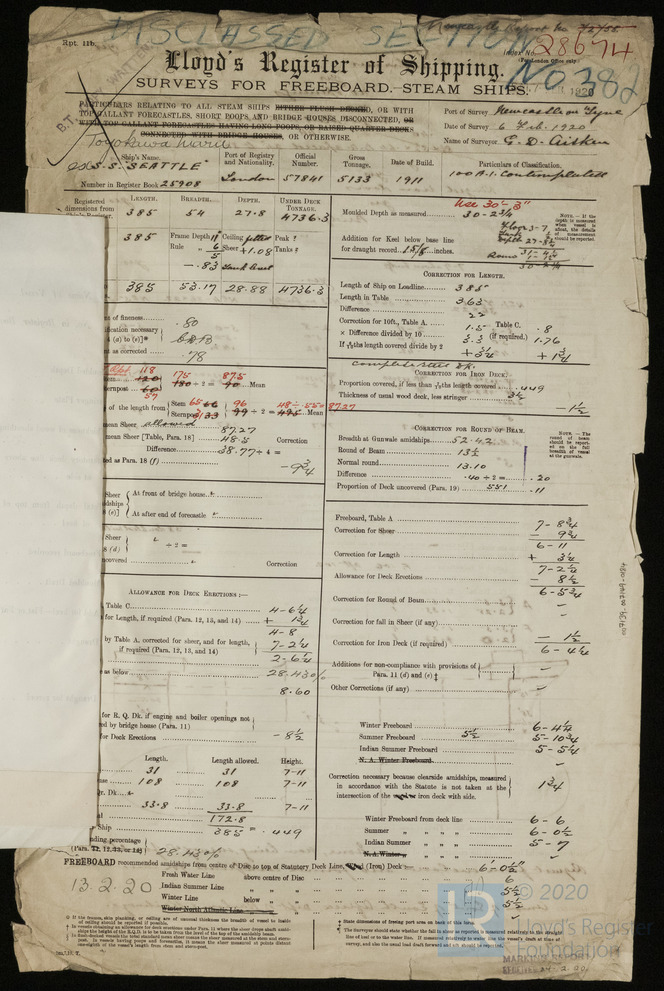 Rpt. 11b.
DISCLASSED SECTION
Index No. 28674
(For London Office only)
No 382
Lloyd's Register of Shipping.
SURVEYS FOR FREEBOARD. STEAM SHIPS.
PARTICULARS RELATING TO ALL STEAM SHIPS EITHER FLUSH DECKED, OR WITH
TOP-GALLANT FORECASTLES, SHORT POOPS, AND BRIDGE HOUSES, DISCONNECTED, OR
WITH TOP-GALLANT FORECASTLES HAVING LONG POOPS, OR RAISED QUARTER DECKS
CONNECTED WITH BRIDGE HOUSES, OR OTHERWISE.
Port of Survey Newcastle on Tyne
Date of Survey 6 Feb. 1920
Name of Surveyor E. D. Aisken
Toyokawa Maru
Ship's Name. Port of Registry and Nationality. Official Number. Gross Tonnage. Date of Build. Particulars of Classification.
S.S. "SEATTLE" London 57841 5133 1911 100 A.1. Contemplated
Number in Register Book 25908
LENGTH. BREADTH. DEPTH. UNDER DECK TONNAGE.
Registered dimensions from
385 54 27.8 4736.3
385 Frame Depth Ceiling fitted Peak ?
Rule Sheer +1.08 Tanks ?
- .83 Tank level
385 53.17 28.88 4736.3
Use 30'-3"
Moulded Depth as measured 30-2¾
Addition for Keel below base line
for draught record 1⅝ inches.
NOTE.—If the depth is measured when vessel is afloat, the details of measurement should be reported.
CORRECTION FOR LENGTH.
Length of Ship on Loadline 385
Length in Table 363
Difference 22
Correction for 10ft., Table A. 1.5 Table C. .8
× Difference divided by 10 3.3 (if required.) 1.76
If 6/10ths length covered divide by 2 + 3¼ + 1¾
complete steel dk.
CORRECTION FOR IRON DECK.
Proportion covered, if less than 7/10ths length covered .449
Thickness of usual wood deck, less stringer 3½
— 1½
CORRECTION FOR ROUND OF BEAM.
Breadth at Gunwale amidships 52.42
Round of Beam 13½
Normal round 13.10
Difference .40 ÷ 2 = .20
Proportion of Deck uncovered (Para. 19) .551 .11
NOTE.—The round of beam should be reported on the full breadth of vessel at the gunwale.
s of fineness .80
ication necessary
(d) to (e)]*
t as corrected .78
118 175 87.5
120 180 ÷ 2 = 90 Mean
Sternpost 60
57
of the length from Stem 65 66 96 48 ÷ .55 = 87.27
Sternpost 31 33 99 ÷ 2 = 49.5 Mean
mean Sheer allowed 87.27
mean Sheer [Table, Para. 18] 48.5 Correction
Difference 38.77 ÷ 4 =
ed as Para. 18 (f) - 9¾
Sheer At front of bridge house
(e)] At after end of forecastle
Sheer
(d) ÷ 2 =
covered Correction
Freeboard, Table A 7 - 8¾
Correction for Sheer - 9¾
6 - 11
Correction for Length + 3¼
7 - 2¼
Allowance for Deck Erections - 8½
6 - 5¾
Correction for Round of Beam
Correction for fall in Sheer (if any)
Correction for Iron Deck (if required) - 1½
6 - 4¼
Additions for non-compliance with provisions of
Para. 11 (d) and (e) ‡
Other Corrections (if any)
ALLOWANCE FOR DECK ERECTIONS :—
Table C. 4 - 6¼
for Length, if required (Para. 12, 13, and 14) + 1¾
4 - 8
by Table A, corrected for sheer, and for length, 7 - 2¼
if required (Para. 12, 13, and 14)
2 - 6¼
as below 28.43%
8.60
for R. Q. Dk. if engine and boiler openings not
ed by bridge house (Para. 11)
for Deck Erections - 8½
Length. Length allowed. Height.
31 31 7-11
108 108 7-11
33.8 33.8 7-11
172.8
Ship 385 = .449
nding percentage
(Para. 11, 12, 13, or 14) 28.43%
Winter Freeboard 6 - 4¼
Summer Freeboard 5½ 5 - 10¾
Indian Summer Freeboard 5 - 5¼
N. A. Winter Freeboard
Correction necessary because clearside amidships, measured
in accordance with the Statute is not taken at the
intersection of the iron deck with side. 1¾
Winter Freeboard from deck line 6 - 6
Summer „ „ „ „ 6 - 0½
Indian Summer „ „ „ „ 5 - 7
N. A. Winter „ „ „ „
FREEBOARD recommended amidships from centre of Disc to top of Statutory Deck Line, (Iron) Deck: 6'-0½"
Fresh Water Line above centre of Disc 6
Indian Summer Line „ „ 5½
Winter Line below „ 5½
Winter North Atlantic Line
13.2.20
© 2020
Lloyd's Register
Foundation
LR